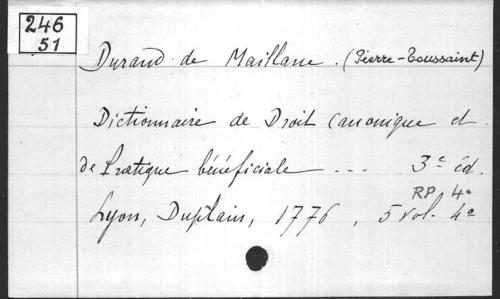 246
51
Durand de Maillane. (Pierre-Toussaint)
Dictionnaire de Droit canonique et
de Pratique bénéficiale --- 3e éd.
RP. 4o
Lyon, Duplain, 1776, 5 vol. 4o